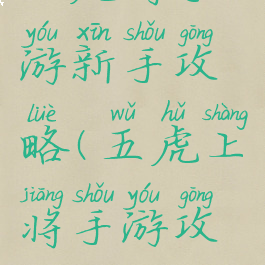 yóu xīn shǒu gōng
游新手攻
lüè wǔ hǔ shàng
略(五虎上
jiāng shǒu yóu gōng
将手游攻